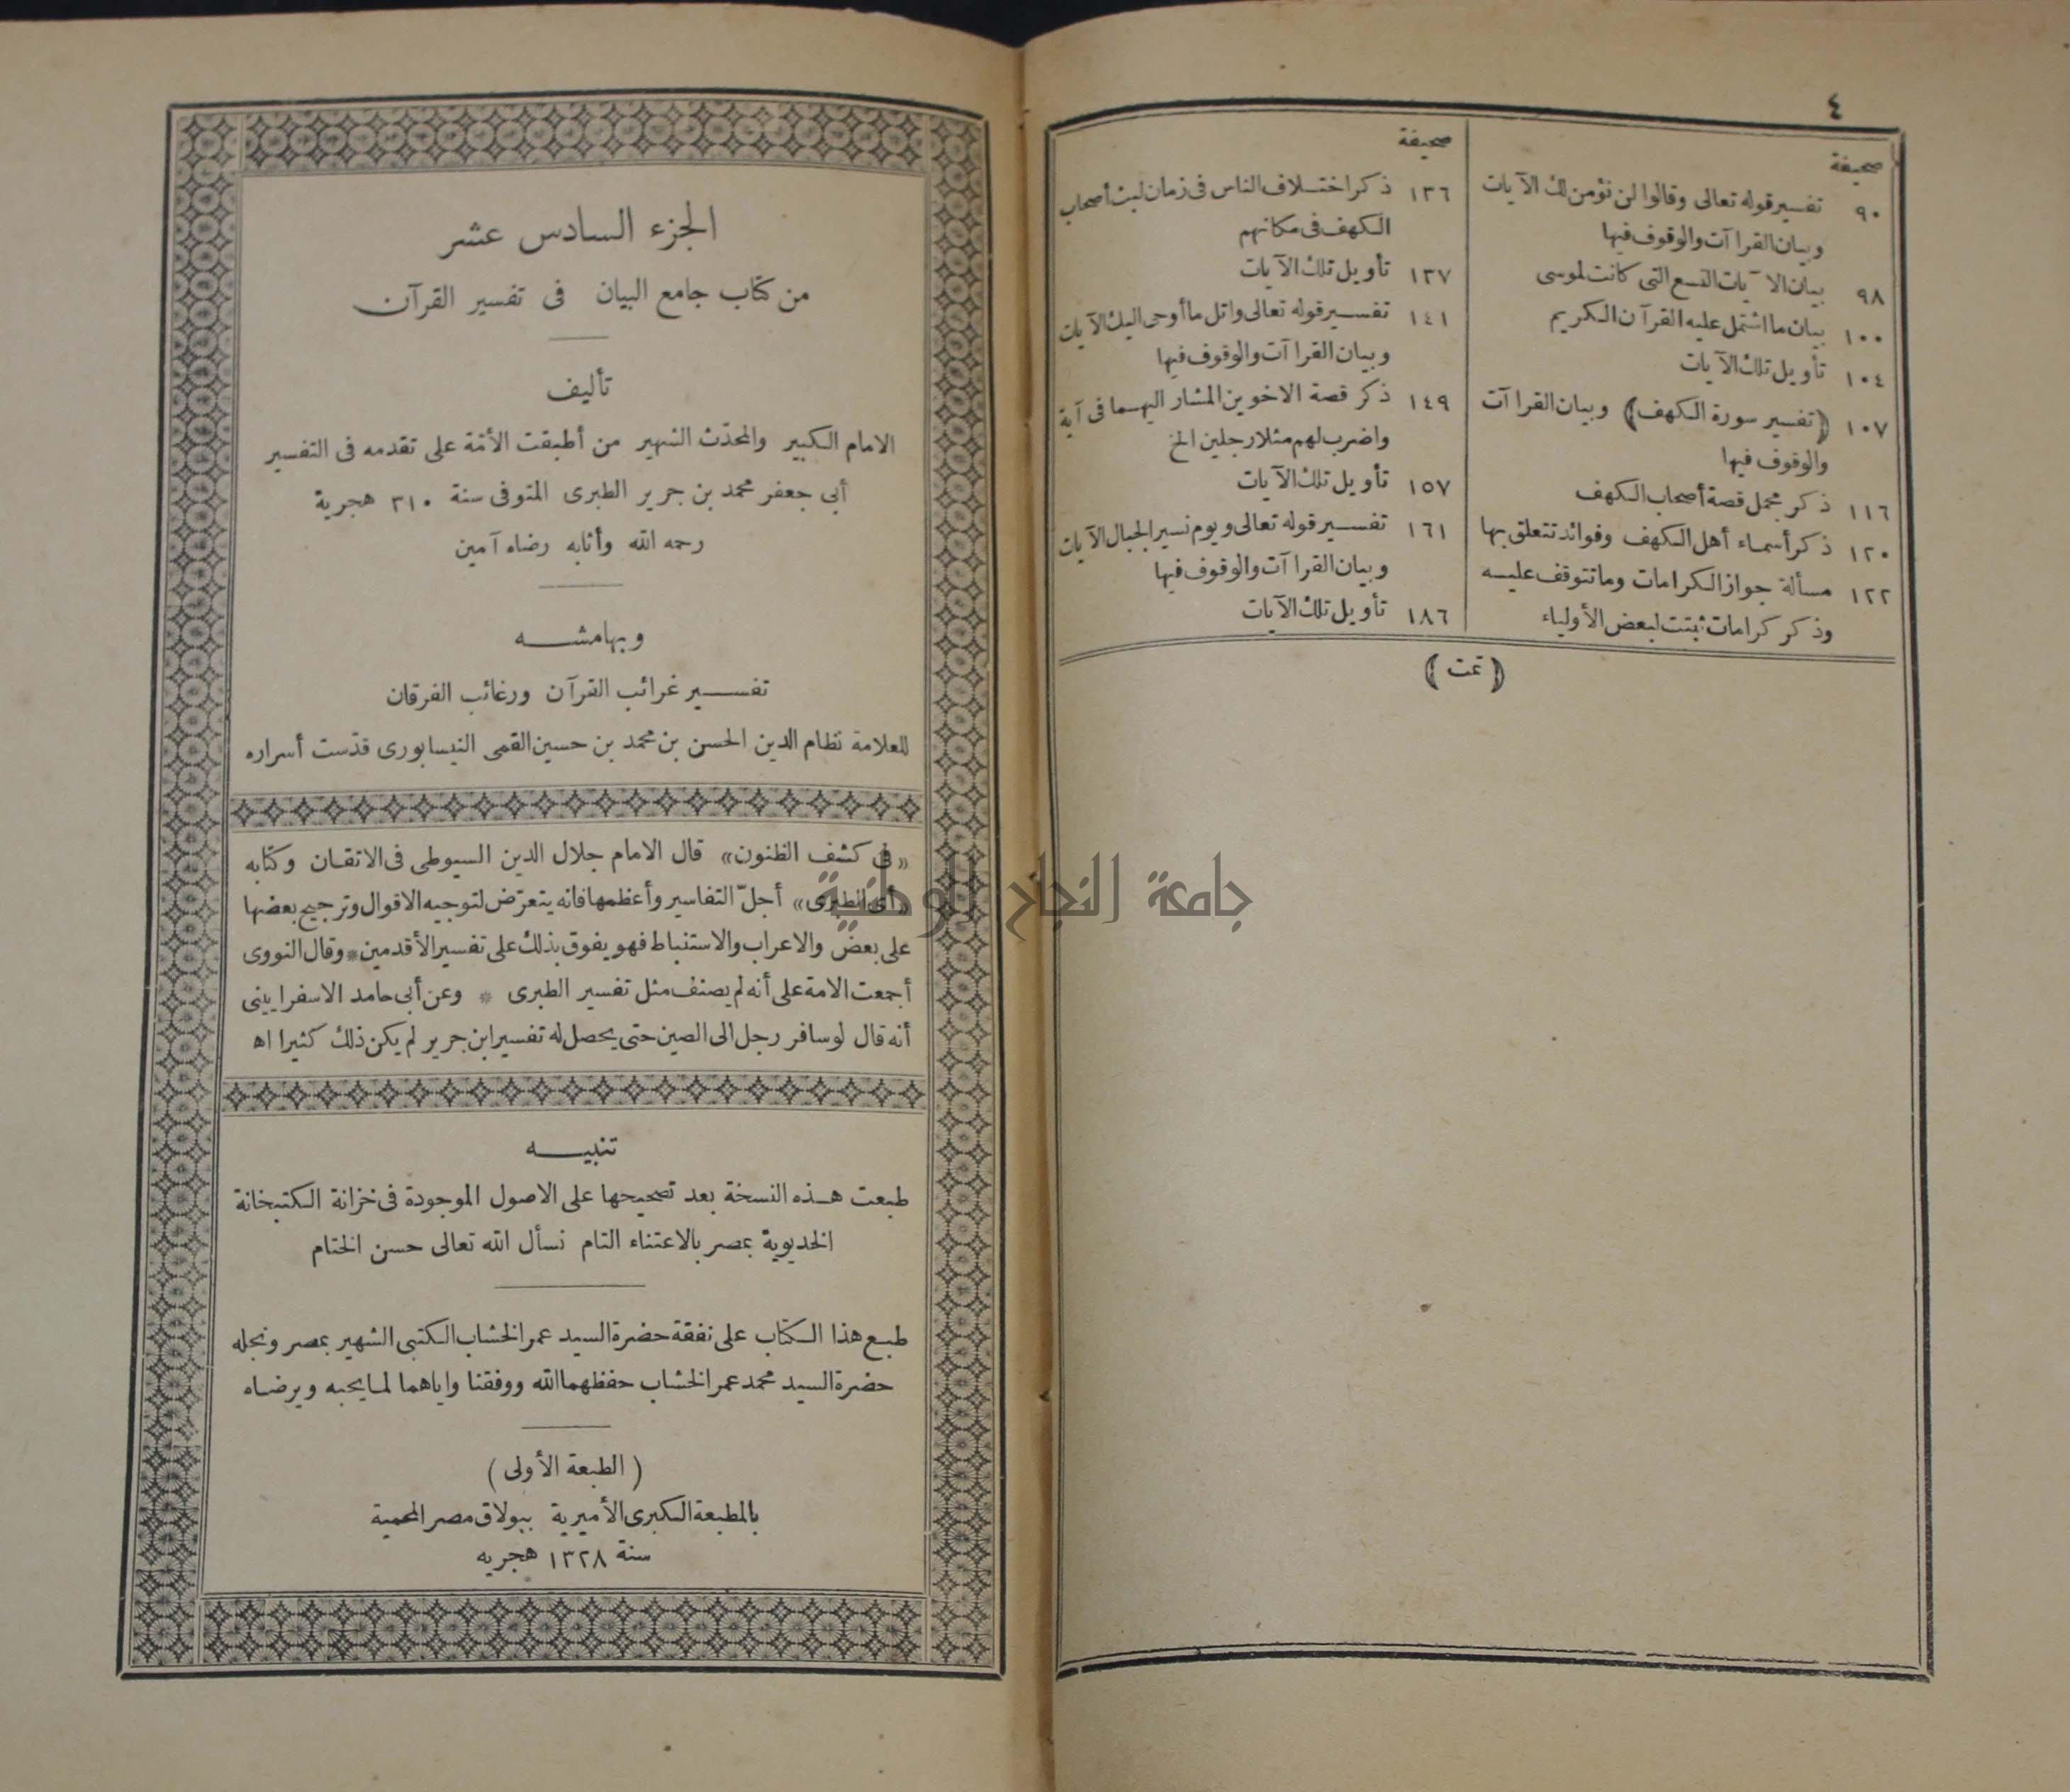 ٤
صحيفة
٩٠ تفسير قوله تعالى وقالوا لن نؤمن لك الآيات
وبيان القراآت والوقوف فيها
٩٨ بيان الآيات التسع التى كانت لموسى
١٠٠ بيان ما اشتمل عليه القرآن الكريم
١٠٤ تأويل تلك الآيات
١٠٧ ﴿تفسير سورة الكهف﴾ وبيان القراآت
والوقوف فيها
١١٦ ذكر مجمل قصة أصحاب الكهف
١٢٠ ذكر أسماء أهل الكهف وفوائد تتعلق بها
١٢٢ مسألة جواز الكرامات وما تتوقف عليه
وذكر كرامات ثبتت لبعض الأولياء
صحيفة
١٣٦ ذكر اختلاف الناس فى زمان لبث أصحاب
الكهف فى مكانهم
١٣٧ تأويل تلك الآيات
١٤١ تفسير قوله تعالى واتل ما أوحى اليك الآيات
وبيان القراآت والوقوف فيها
١٤٩ ذكر قصة الاخوين المشار اليهما فى آية
واضرب لهم مثلا رجلين الخ
١٥٧ تأويل تلك الآيات
١٦١ تفسير قوله تعالى ويوم نسير الجبال الآيات
وبيان القراآت والوقوف فيها
١٨٦ تأويل تلك الآيات
﴿تمت﴾
الجزء السادس عشر
من كتاب جامع البيان فى تفسير القرآن
تأليف
الامام الكبير والمحدّث الشهير من أطبقت الأمّة على تقدمه فى التفسير
أبى جعفر محمد بن جرير الطبرى المتوفى سنة ٣١٠ هجرية
رحمه الله وأثابه رضاه آمين
وبهامشه
تفسير غرائب القرآن ورغائب الفرقان
للعلامة نظام الدين الحسن بن محمد بن حسين القمى النيسابورى قدّست أسراره
«فى كشف الظنون» قال الامام جلال الدين السيوطى فى الاتقان وكتابه
«أى الطبرى» أجلّ التفاسير وأعظمها فانه يتعرّض لتوجيه الاقوال وترجيح بعضها
على بعض والاعراب والاستنباط فهو يفوق بذلك على تفسير الأقدمين * وقال النووى
أجمعت الامة على أنه لم يصنف مثل تفسير الطبرى * وعن أبى حامد الاسفراينى
أنه قال لو سافر رجل الى الصين حتى يحصل له تفسير ابن جرير لم يكن ذلك كثيرا اه
تنبيه
طبعت هذه النسخة بعد تصحيحها على الاصول الموجودة فى خزانة الكتبخانة
الخديوية بمصر بالاعتناء التام نسأل الله تعالى حسن الختام
طبع هذا الكتاب على نفقة حضرة السيد عمر الخشاب الكتبى الشهير بمصر ونجله
حضرة السيد محمد عمر الخشاب حفظهما الله ووفقنا واياهما لما يحبه ويرضاه
(الطبعة الأولى)
بالمطبعة الكبرى الأميرية ببولاق مصر المحمية
سنة ١٣٢٨ هجريه
جامعة النجاح الوطنية